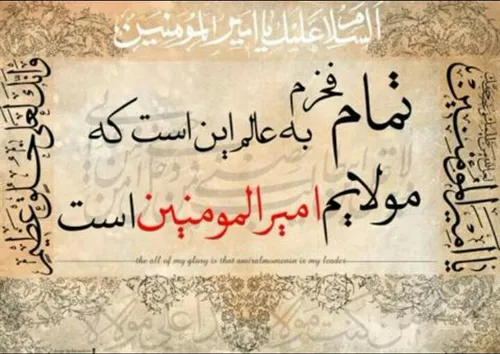 السلام علیک یا امیرالمومنین
تمام فخرم به عالم این است که
مولایم امیرالمومنین است
the all of my glory is that amiralmomenin is my leader
وانک لعلی خلق عظیم
یا امیرالمومنین
من کنت مولاه فهذا علی مولاه